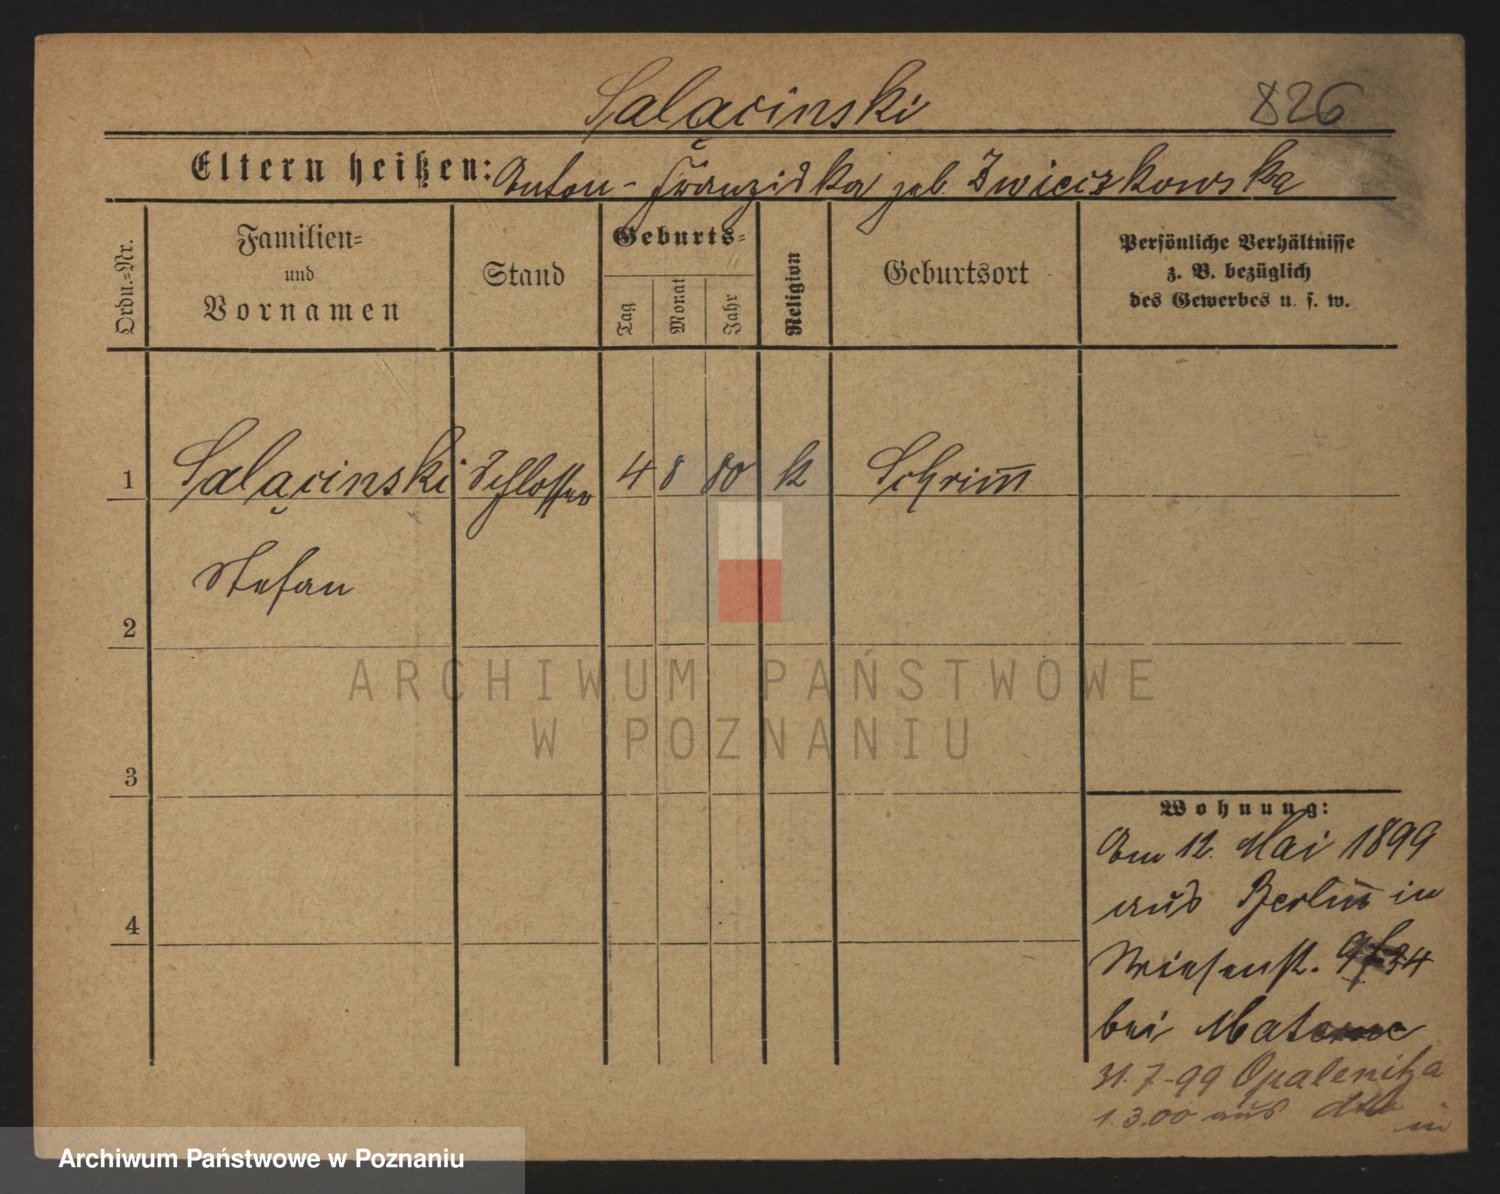 Salącinski
826
Eltern heißen: Anton - Franziska geb. Zwieczkowska
Ordn.=Nr.
Familien=
und
Vornamen
Stand
Geburts=
Tag
Monat
Jahr
Religion
Geburtsort
Persönliche Verhältnisse
z. B. bezüglich
des Gewerbes u. s. w.
1 Salącinski Schlosser 4 8 80 k Schrimm
Stefan
2
3
4
Wohnung:
Am 12. Mai 1899
aus Berlin in
Wiesenst. 34
bei
31.7.99 Opalenitza
1.3.00 aus dto
in
ARCHIWUM PAŃSTWOWE
W POZNANIU
Archiwum Państwowe w Poznaniu